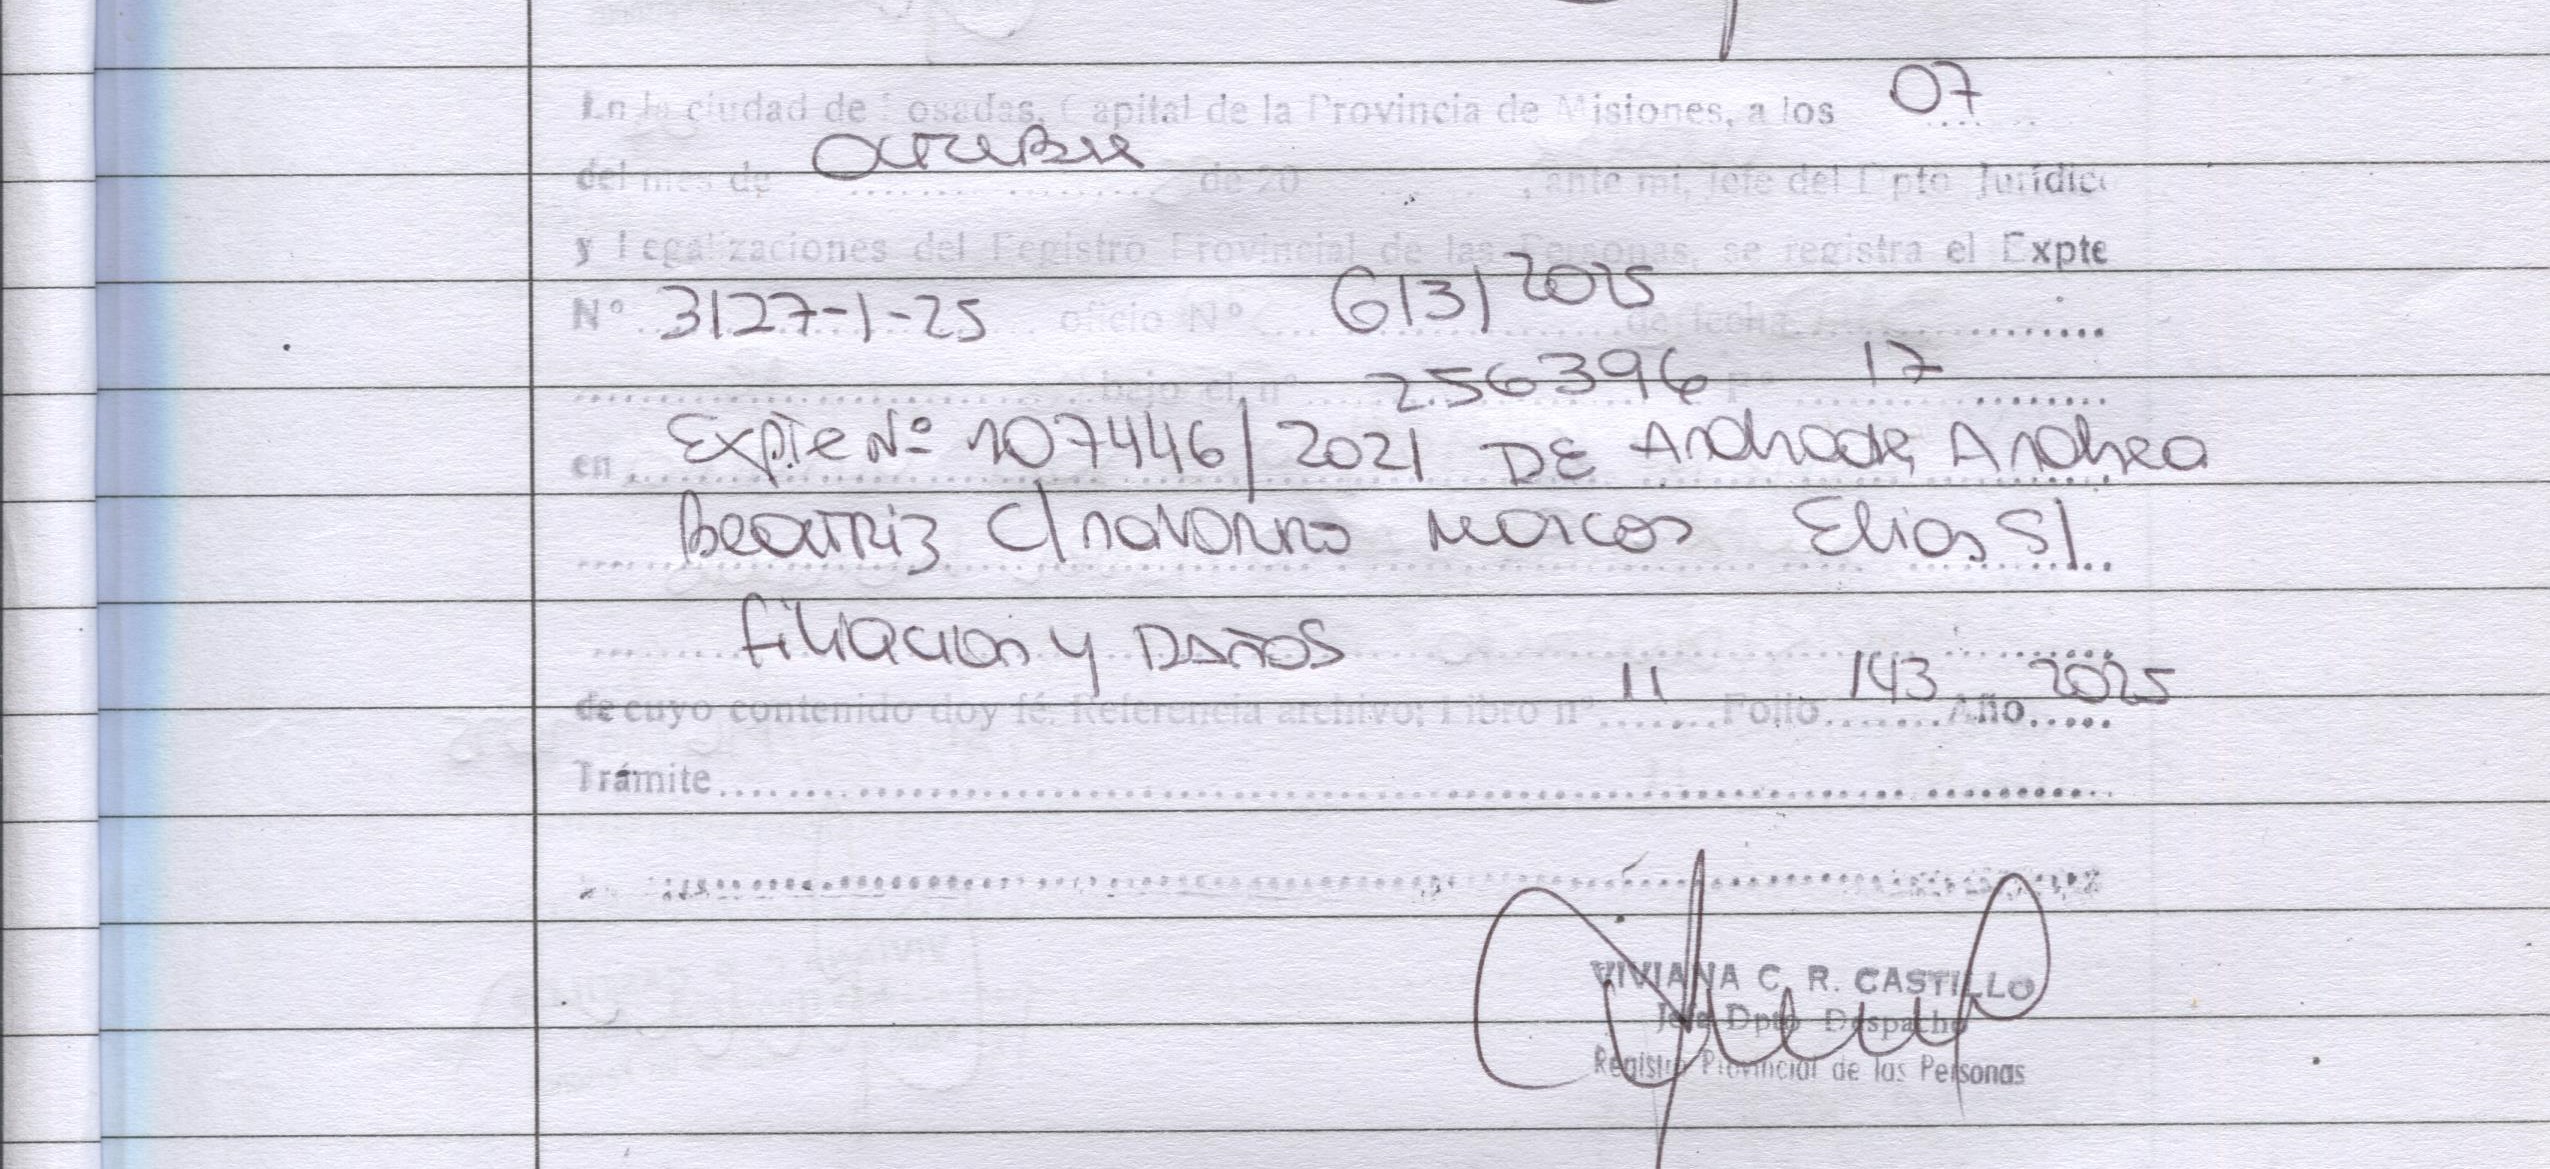 En la ciudad de Posadas, Capital de la Provincia de Misiones, a los 07
del mes de octubre de 20 , ante mi, Jefe del Dpto Jurídico
y Legalizaciones del Registro Provincial de las Personas, se registra el Expte
Nº 3127-1-25 oficio Nº 613/2025 de fecha
bajo el nº 256396 Fº 17
en Expte Nº 107446/2021 DE Andrade, Andrea
Beatriz C/ navarro Marcos Elias S/
filiacion y DAÑOS
de cuyo contenido doy fé. Referencia archivo: Libro nº 11 Folio 143 Año 2025
Trámite
VIVIANA C. R. CASTILLO
Jefa Dpto Despacho
Registro Provincial de las Personas